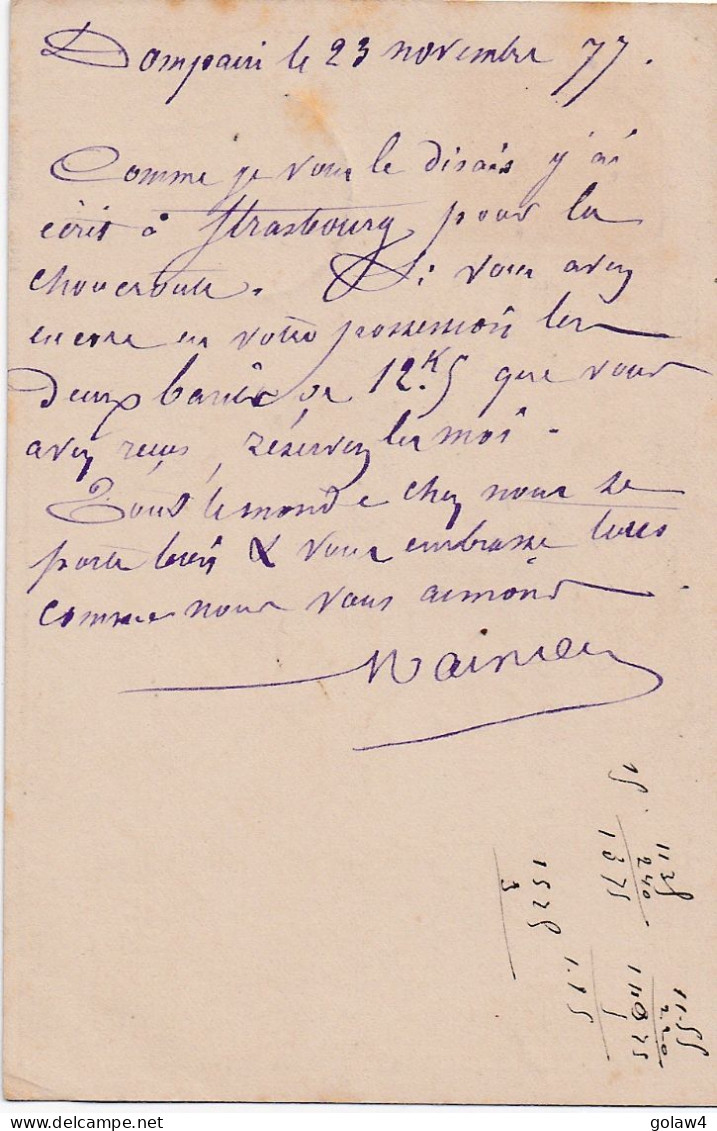 Dompaire le 23 novembre 77.
Comme je vous le disais j'ai
écrit à Strasbourg pour la
choucroute. Si vous avez
encore en votre possession les
deux barils de 12.K5 que vous
avez reçus, réservez les moi.
Tout le monde chez nous se
porte bien & vous embrasse tous
comme nous vous aimons
15
1125
240
1375
1525
3
1.15
1155
2.20
golaw4 | Delcampe.net